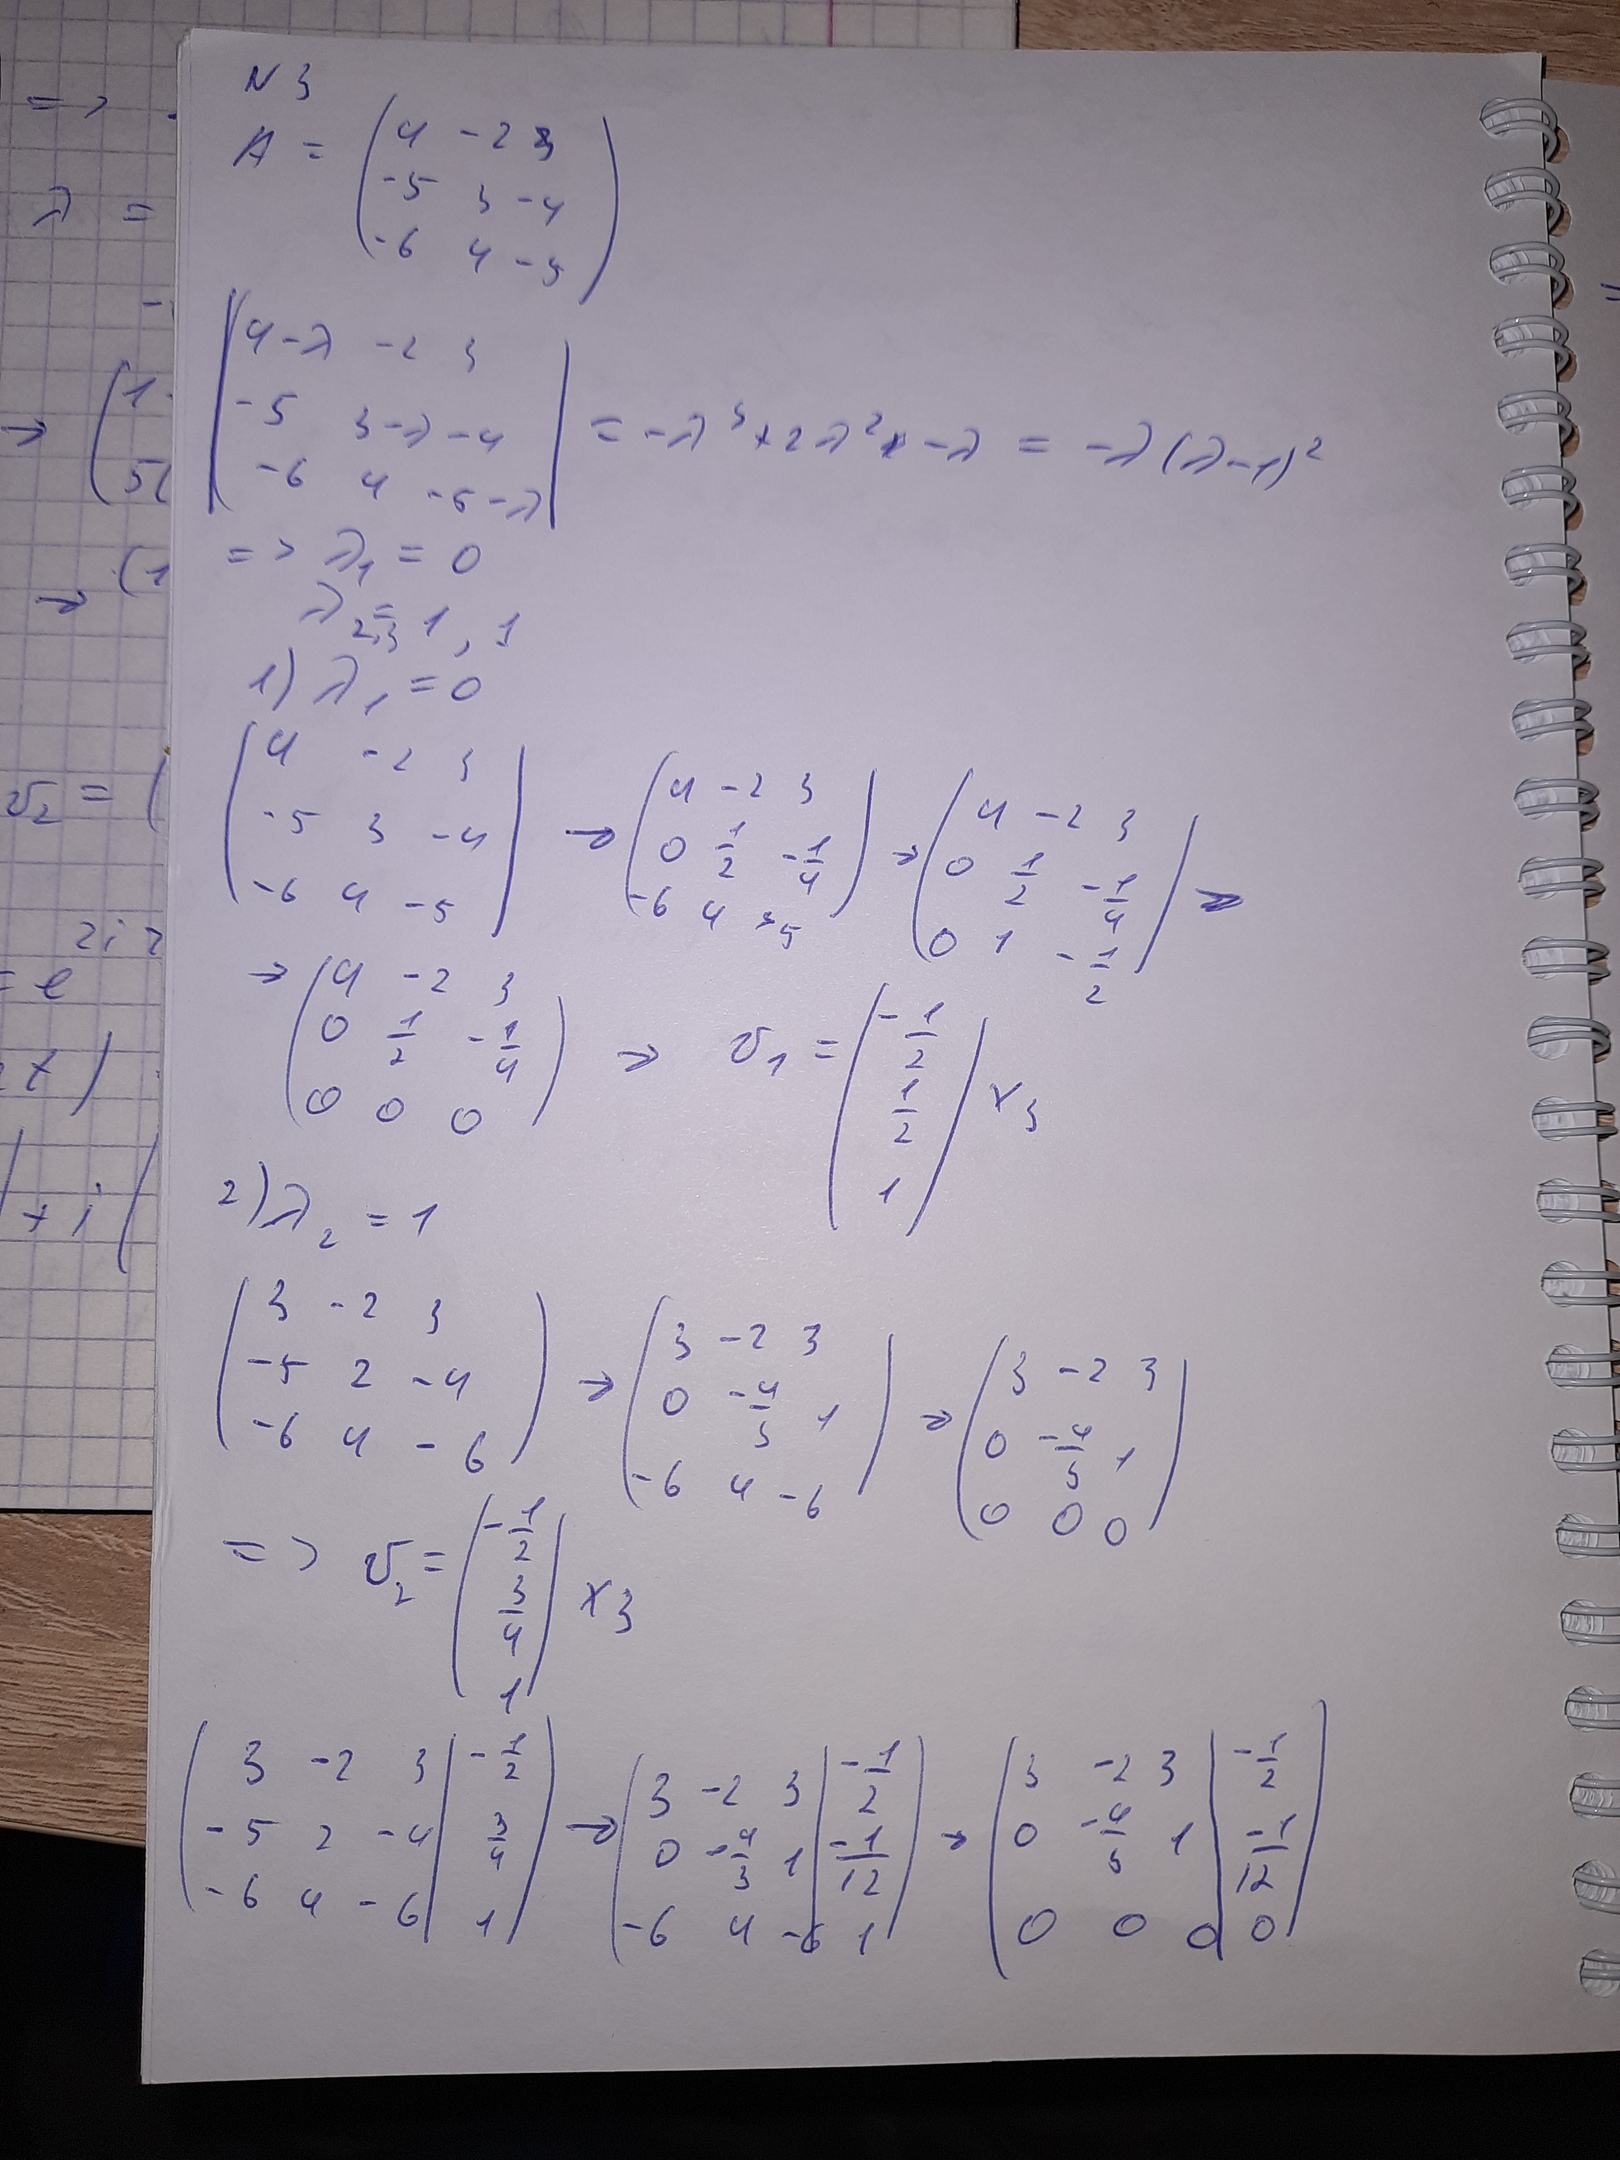 N 3
A = (4 -2 3
-5 3 -4
-6 4 -5)
|4-λ -2 3
-5 3-λ -4
-6 4 -5-λ| = -λ³+2λ² -λ = -λ(λ-1)²
=> λ₁ = 0
λ₂,₃ = 1, 1
1) λ₁ = 0
(4 -2 3
-5 3 -4
-6 4 -5) → (4 -2 3
0 1/2 -1/4
-6 4 -5) → (4 -2 3
0 1/2 -1/4
0 1 -1/2) →
→ (4 -2 3
0 1/2 -1/4
0 0 0) → v₁ = (-1/2
1/2
1) x₃
2) λ₂ = 1
(3 -2 3
-5 2 -4
-6 4 -6) → (3 -2 3
0 -4/3 1
-6 4 -6) → (3 -2 3
0 -4/3 1
0 0 0)
=> v₂ = (-1/2
3/4
1) x₃
(3 -2 3 | -1/2
-5 2 -4 | 3/4
-6 4 -6 | 1) → (3 -2 3 | -1/2
0 -4/3 1 | -1/12
-6 4 -6 | 1) → (3 -2 3 | -1/2
0 -4/3 1 | -1/12
0 0 0 | 0)
=>
λ =
→ (1
5(
→ (1
v₂ = (
2i
= e
t)
+ i (